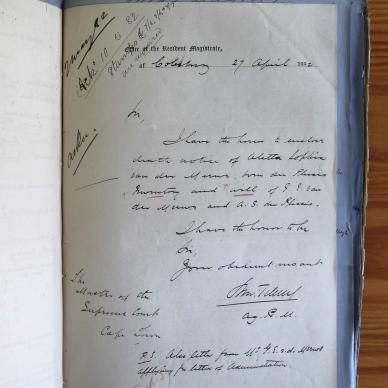 Ack 10 5 82
Office of the Resident Magistrate,
at Colesberg 27 April 1882
Sir,
I have the honor to enclose
death notice of Aletta Sophia
van der Merwe, born du Plessis
Inventory and will of
van
der Merwe and A. S. du Plessis.
I have the honor to be
Sir,
Your obedient servant
Actg R. M.
The
Master of the
Supreme Court
Cape Town
P.S. Also letter from Mr v. d. Merwe
applying for letter of Administration.